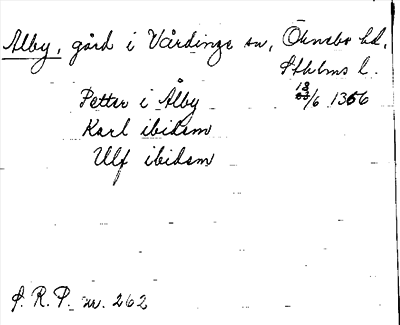 Ålby, gård i Vårdinge sn, Öknebo hd,
Sthlms l.
Petter i Ålby 13/6 1356
Karl ibidem
Ulf ibidem
S. R. P. nr. 262